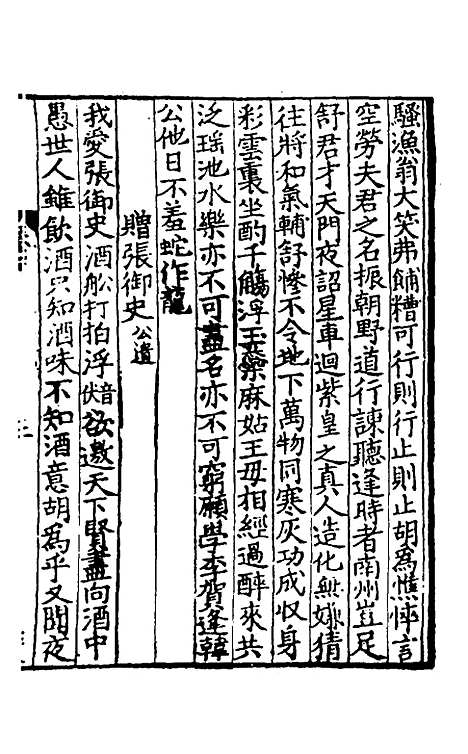 騷漁翁大笑弗餔糟可行則行止則止胡為憔悴言
空勞夫君之名振朝野道行諫聽逢時者南州豈足
舒君才天門夜詔星車迴紫皇之真人造化無嫌猜
往將和氣輔舒慘不令地下萬物同寒灰功成収身
彩雲裏坐酌千觴浮玉蘂麻姑王母相經過醉來共
泛瑶池水樂亦不可盡名亦不可窮願學李賀逢韓
公他日不羞蛇作龍
贈張御史公遺
我愛張御史酒舩打拍浮音伏欲邀天下賢盡向酒中
愚世人雖飲酒只知酒味不知酒意胡為乎又聞夜